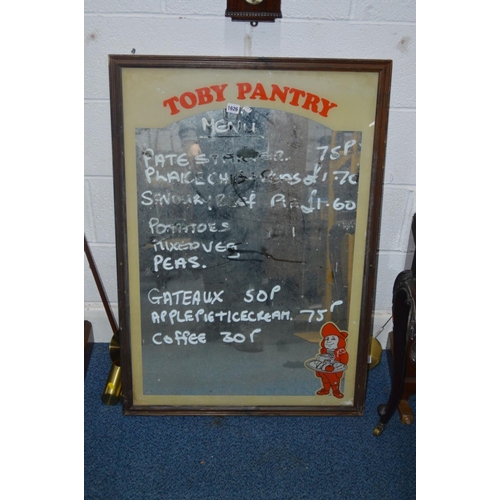 TOBY PANTRY
1626
MENU
PATE STARTER. 75P
PLAICE CHIPS PEAS £1.70
SAVOURY BEEF PIE £1.60
POTATOES
MIXED VEG
PEAS.
GATEAUX 50P
APPLE PIE + ICECREAM. 75P
COFFEE 30P